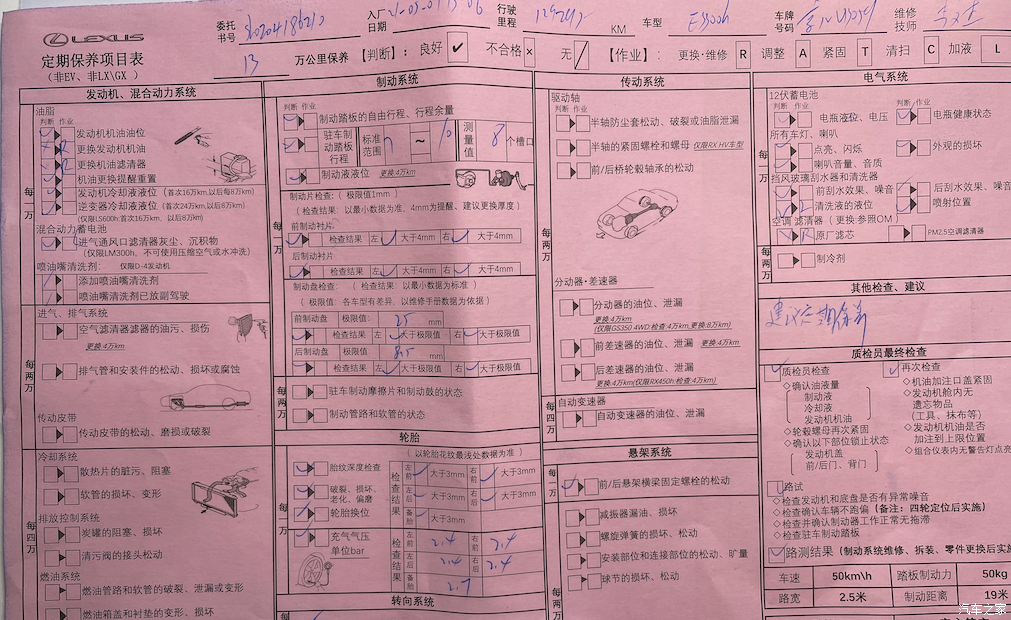 LEXUS
委托书号
入厂日期
行驶里程
KM
车型
ES300h
车牌号码
维修技师
定期保养项目表
(非EV、非LX\GX )
13 万公里保养 【判断】: 良好 ✓ 不合格 × 无 / 【作业】: 更换·维修 R 调整 A 紧固 T 清扫 C 加液 L
发动机、混合动力系统
每一万
油脂
判断 作业
发动机机油油位
更换发动机机油
更换机油滤清器
机油更换提醒重置
发动机冷却液液位 (首次16万km,以后每8万km)
逆变器冷却液液位 (首次24万km,以后8万km)
(仅限LS600h:首次16万km、以后8万km)
混合动力蓄电池
进气通风口滤清器灰尘、沉积物
(仅限LM300h、不可使用压缩空气或水冲洗)
喷油嘴清洗剂: 仅限D-4发动机
添加喷油嘴清洗剂
喷油嘴清洗剂已放副驾驶
每两万
进气、排气系统
空气滤清器滤器的油污、损伤
更换:4万km
排气管和安装件的松动、损坏或腐蚀
传动皮带
传动皮带的松动、磨损或破裂
每四万
冷却系统
散热片的脏污、阻塞
软管的损坏、变形
排放控制系统
炭罐的阻塞、损坏
清污阀的接头松动
燃油系统
燃油管路和软管的破裂、泄漏或变形
燃油箱盖和衬垫的变形、损坏
制动系统
每一万
判断 作业
制动踏板的自由行程、行程余量
驻车制动踏板行程
标准范围 7 ~ 10
测量值 8 个槽口
制动液液位 更换:4万km
制动片检查:( 极限值1mm )
( 检查结果: 以最小数据为准, 4mm为提醒、建议更换厚度 )
前制动衬片
检查结果 左 大于4mm 右 大于4mm
后制动衬片
检查结果 左 大于4mm 右 大于4mm
制动盘检查:( 检查结果: 以最小数据为标准 )
( 极限值: 各车型有差异, 以维修手册数据为依据 )
前制动盘 极限值: 25 mm
检查结果 左 大于极限值 右 大于极限值
后制动盘 极限值 8.5 mm
检查结果 左 大于极限值 右 大于极限值
每两万
驻车制动摩擦片和制动鼓的状态
制动管路和软管的状态
轮胎
( 以轮胎花纹最浅处数据为准 )
每一万
胎纹深度检查
破裂、损坏、老化、偏磨
轮胎换位
检查结果
左前 大于3mm 右前 大于3mm
左后 大于3mm 右后 大于3mm
备胎 大于3mm
充气气压
单位bar
检查结果
左前 2.4 右前 2.4
左后 2.4 右后 2.4
备胎 2.7
转向系统
传动系统
每两万
驱动轴
半轴防尘套松动、破裂或油脂泄漏
半轴的紧固螺栓和螺母 仅限RX HV车型
前/后桥轮毂轴承的松动
分动器·差速器
分动器的油位、泄漏
更换:4万km
(仅限GS350 4WD 检查:4万km,更换:8万km)
前差速器的油位、泄漏 更换:4万km
后差速器的油位、泄漏
更换:4万km(仅限RX450h:检查:4万km)
每四万
自动变速器
自动变速器的油位、泄漏
悬架系统
每一万
前/后悬架横梁固定螺栓的松动
每两万
减振器漏油、损坏
螺旋弹簧的损坏、松动
安装部位和连接部位的松动、旷量
球节的损坏、松动
电气系统
每一万
12伏蓄电池
判断 作业
电瓶液位、电压
判断 作业
电瓶健康状态
所有车灯、喇叭
点亮、闪烁
外观的损坏
喇叭音量、音质
挡风玻璃刮水器和清洗器
前刮水效果、噪音
后刮水效果、噪音
清洗液的液位
喷射位置
空调滤清器 (更换:参照OM)
R 原厂滤芯
PM2.5空调滤清器
每两万
制冷剂
其他检查、建议
质检员最终检查
质检员检查
◇确认油液量
制动液
冷却液
发动机机油
◇轮毂螺母再次紧固
◇确认以下部位锁止状态
发动机盖
前/后门、背门
再次检查
◇机油加注口盖紧固
◇发动机舱内无遗忘物品
(工具、抹布等)
◇发动机机油是否加注到上限位置
◇组合仪表内无警告灯点亮
路试
◇检查发动机和底盘是否有异常噪音
◇检查确认车辆不跑偏 (备注: 四轮定位后实施)
◇检查并确认制动器工作正常无拖滞
◇检查驻车制动踏板
路测结果 (制动系统维修、拆装、零件更换后实施
车速 50km\h 踏板制动力 50kg
路宽 2.5米 制动距离 19米
汽车之家